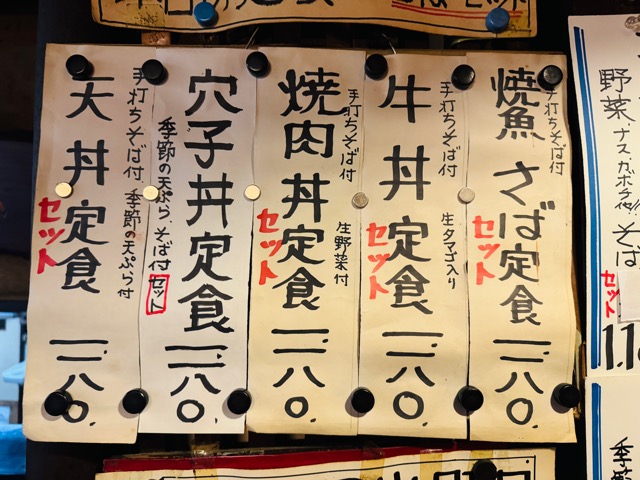 セット
野菜 ナスカボチャ
そば
セット
季節
手打ちそば付
焼魚さば定食
セット
一一八〇
手打ちそば付 生タマゴ入り
牛丼定食
セット
一一八〇
手打ちそば付 生野菜付
焼肉丼定食
セット
一一八〇
穴子丼定食
季節の天ぷら、そば付 セット
一一八〇
手打ちそば付 季節の天ぷら付
天丼定食
セット
一一八〇